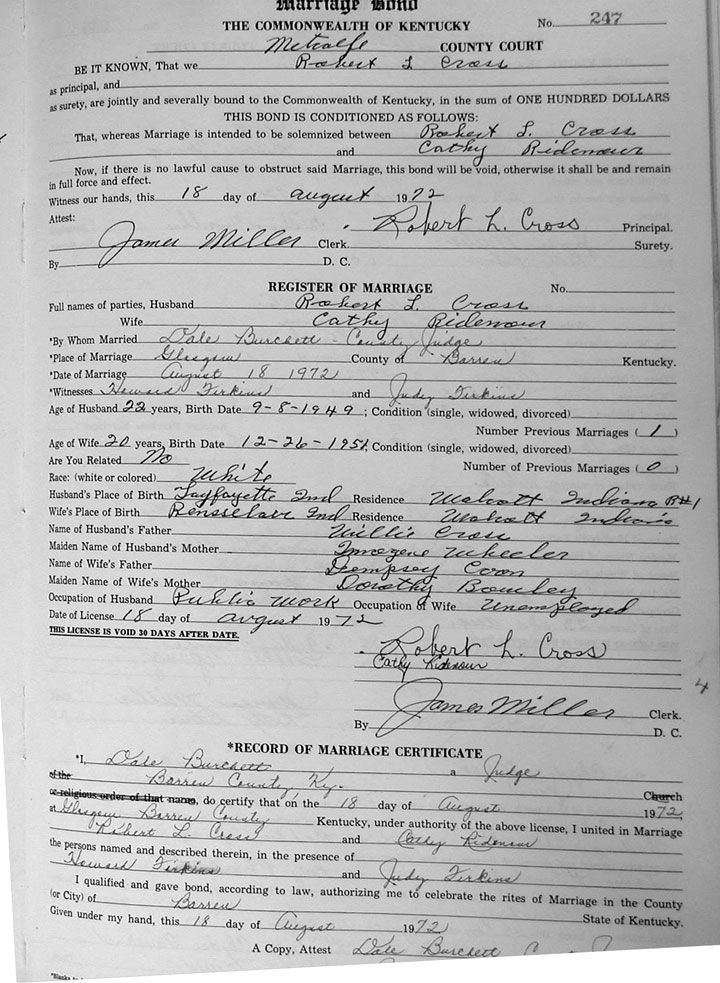 Marriage Bond
THE COMMONWEALTH OF KENTUCKY No. 247
Metcalfe COUNTY COURT
BE IT KNOWN, That we Robert L Cross
as principal, and
as surety, are jointly and severally bound to the Commonwealth of Kentucky, in the sum of ONE HUNDRED DOLLARS
THIS BOND IS CONDITIONED AS FOLLOWS:
That, whereas Marriage is intended to be solemnized between Robert L. Cross
and Cathy Ridenour
Now, if there is no lawful cause to obstruct said Marriage, this bond will be void, otherwise it shall be and remain
in full force and effect.
Witness our hands, this 18 day of august 1972
Attest: Robert L. Cross Principal.
James Miller Clerk. Surety.
By D. C.
REGISTER OF MARRIAGE No.
Full names of parties, Husband Robert L Cross
Wife Cathy Ridenour
*By Whom Married Dale Burchett - County Judge
*Place of Marriage Glasgow County of Barren Kentucky.
*Date of Marriage August 18 1972
*Witnesses Howard Firkins and Judy Firkins
Age of Husband 22 years, Birth Date 9-8-1949; Condition (single, widowed, divorced)
Number Previous Marriages (1)
Age of Wife 20 years, Birth Date 12-26-1951, Condition (single, widowed, divorced)
Are You Related No Number of Previous Marriages (0)
Race: (white or colored) White
Husband's Place of Birth Layfayette Ind Residence Wolcott Indiana R#1
Wife's Place of Birth Rensselaer Ind Residence Wolcott Indiana
Name of Husband's Father Willie Cross
Maiden Name of Husband's Mother Imogene Wheeler
Name of Wife's Father Dempsey Coon
Maiden Name of Wife's Mother Dorothy
Occupation of Husband Public Work Occupation of Wife Unemployed
Date of License 18 day of august 1972
THIS LICENSE IS VOID 30 DAYS AFTER DATE.
Robert L. Cross
Cathy Ridenour
James Miller Clerk.
By D. C.
4
*RECORD OF MARRIAGE CERTIFICATE
*I, Dale Burchett a Judge
of the Barren County, Ky. Church
or religious order of that name, do certify that on the 18 day of August 1972,
at Glasgow Barren County Kentucky, under authority of the above license, I united in Marriage
Robert L. Cross and Cathy Ridenour
the persons named and described therein, in the presence of
Howard Firkins and Judy Firkins
I qualified and gave bond, according to law, authorizing me to celebrate the rites of Marriage in the County
(or City) of Barren State of Kentucky.
Given under my hand, this 18 day of August 1972
A Copy, Attest Dale Burchett